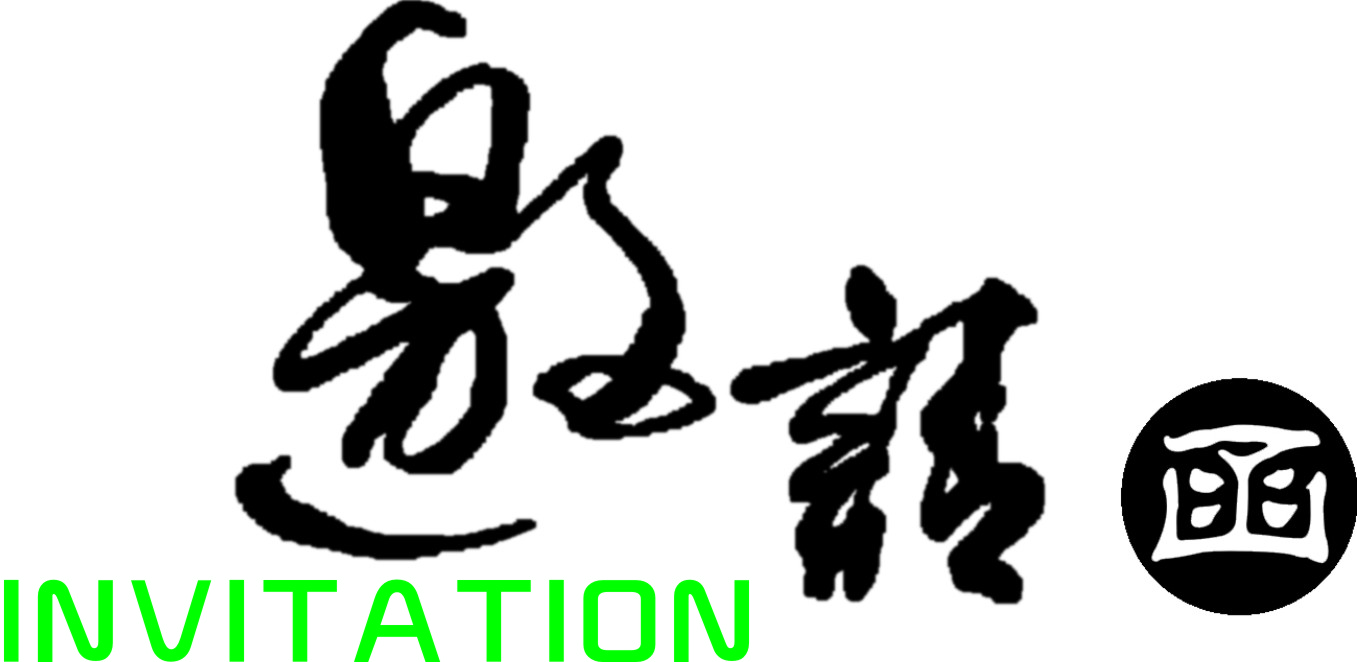 邀請函
INVITATION